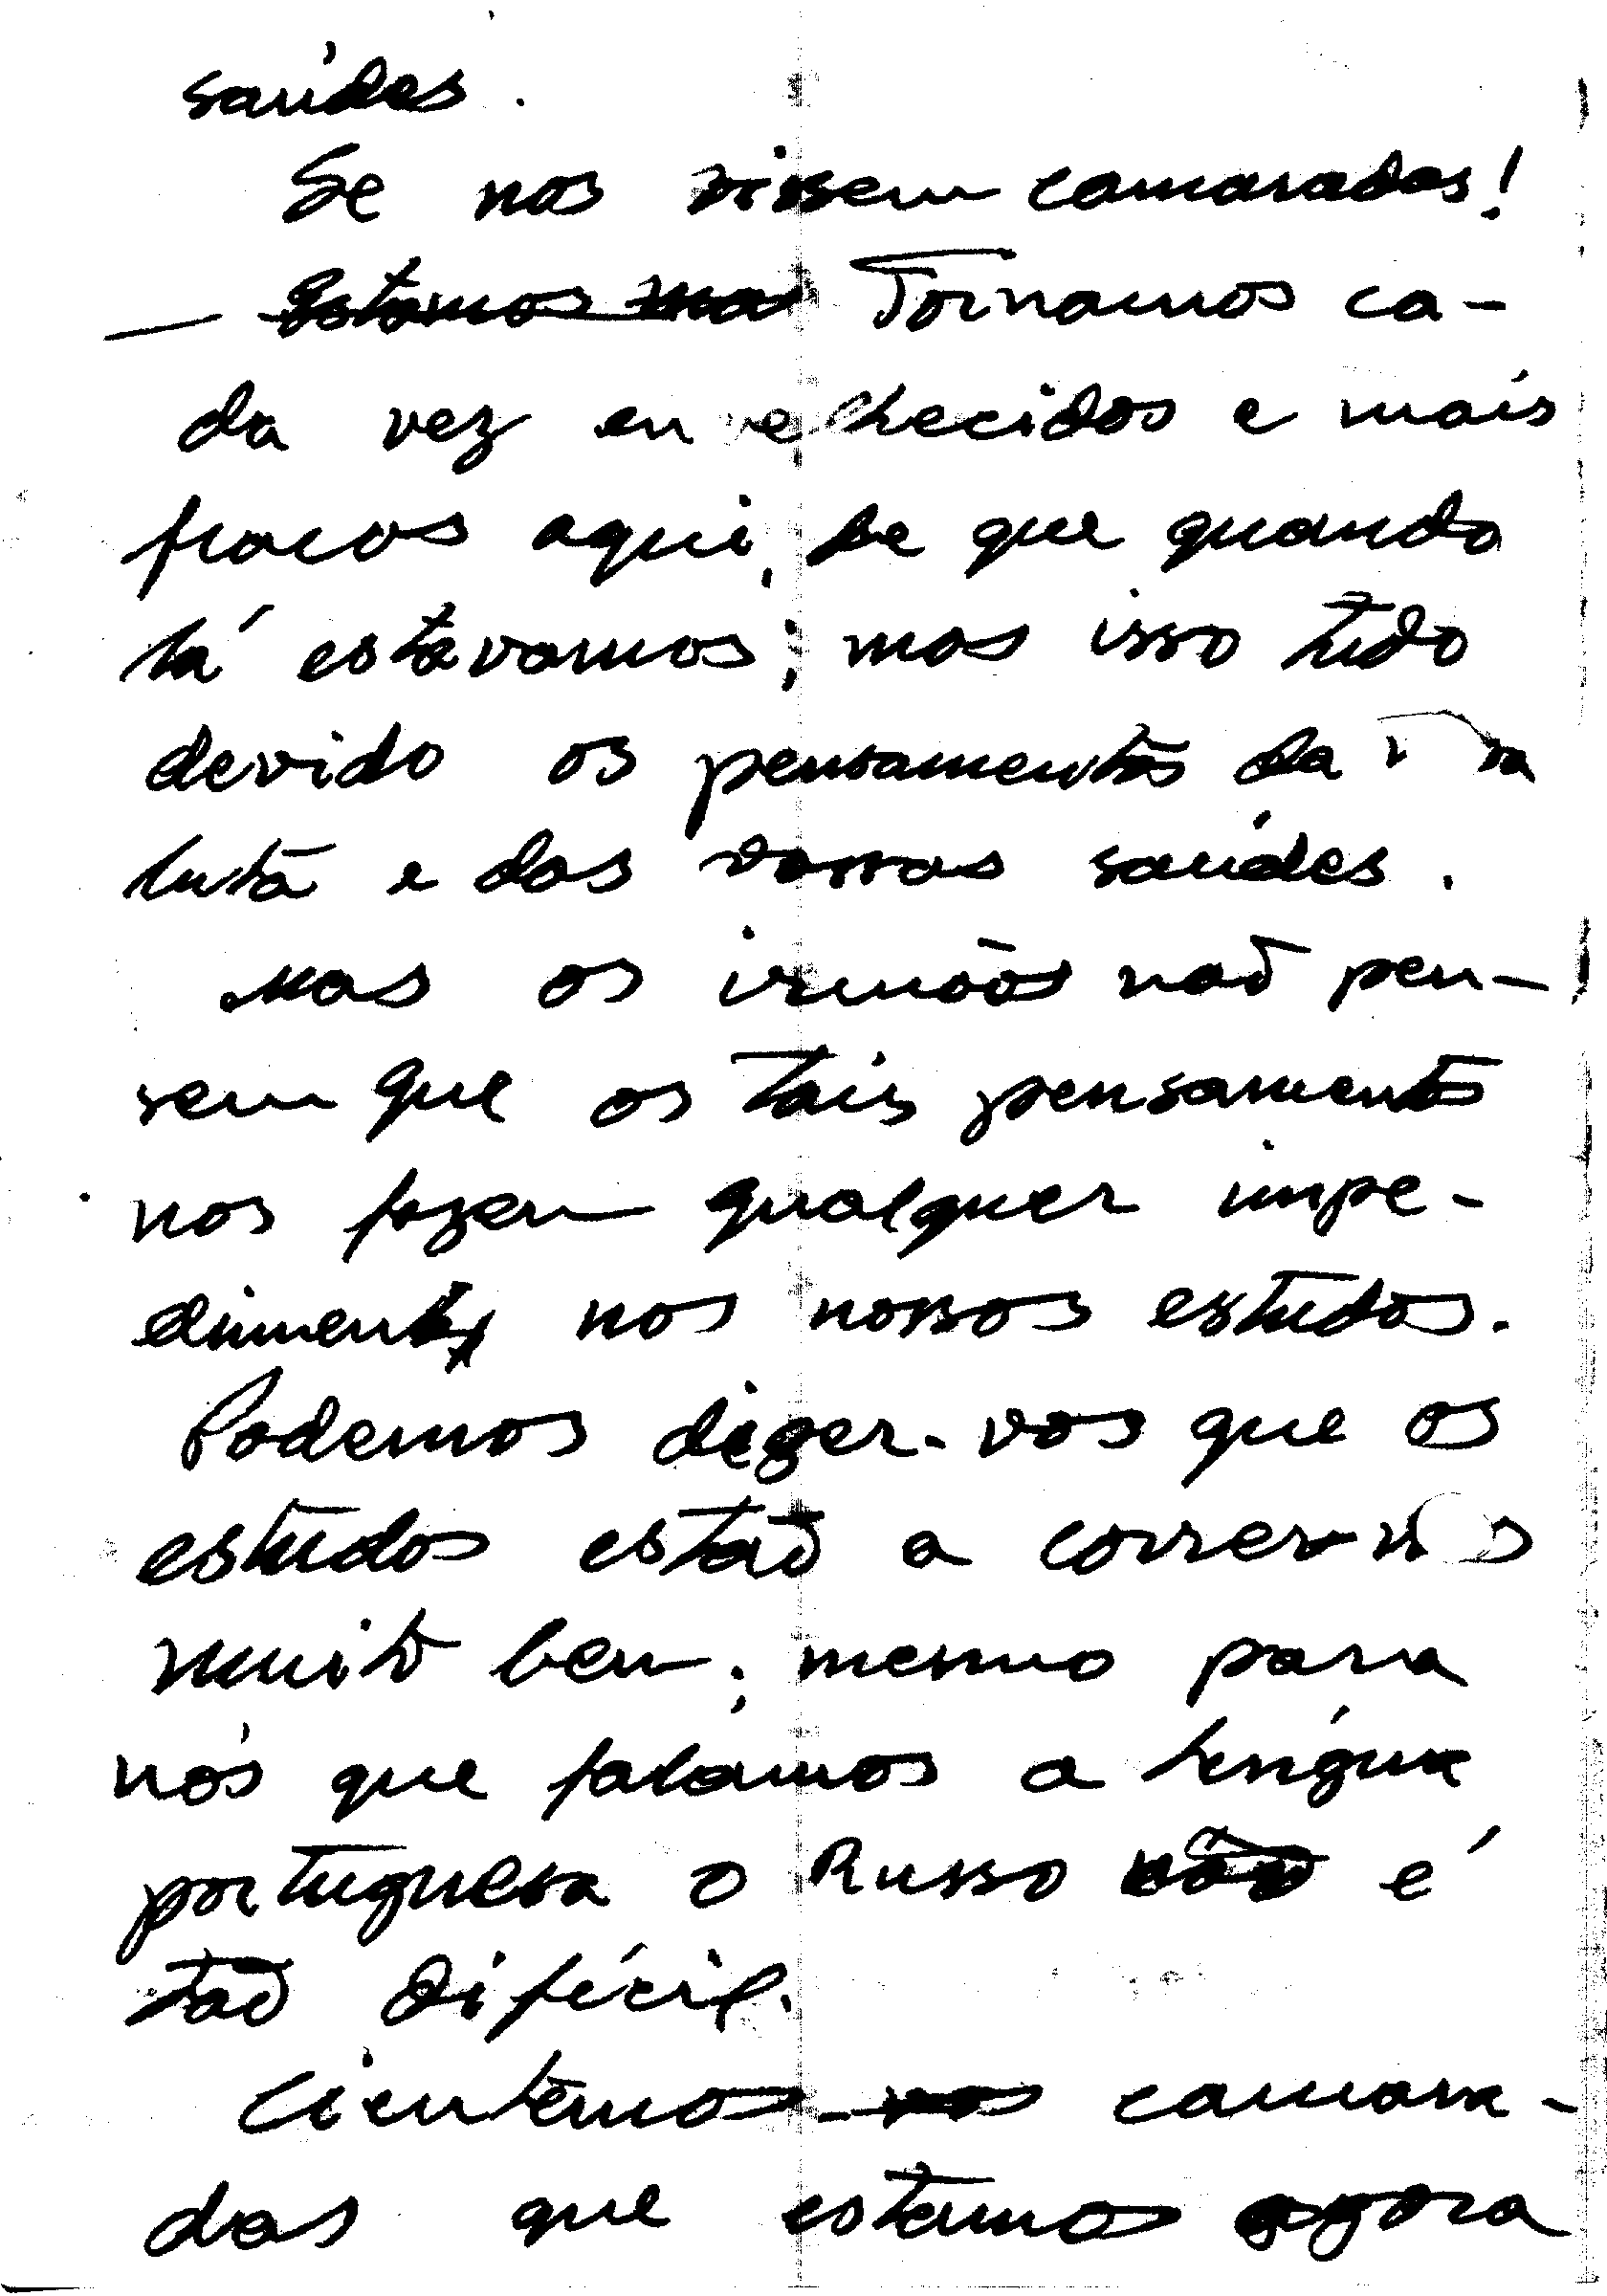 saúdes.
Se nos vissem camaradas!
— Estamos mas Tornamos ca-
da vez envelhecidos e mais
fracos aqui, de que quando
lá estavamos; mas isso tudo
devido os pensamentos da
luta e das vossas saúdes.
Mas os irmãos naõ pen-
sem que os tais pensamentos
nos fazem qualquer impe-
dimento nos nossos estudos.
Podemos dizer-vos que os
estudos estaõ a correr-nos
muito bem; mesmo para
nós que falamos a léngua
portuguesa o Russo não é
taõ difécil.
Cientemos-vos camara-
das que estamos agora